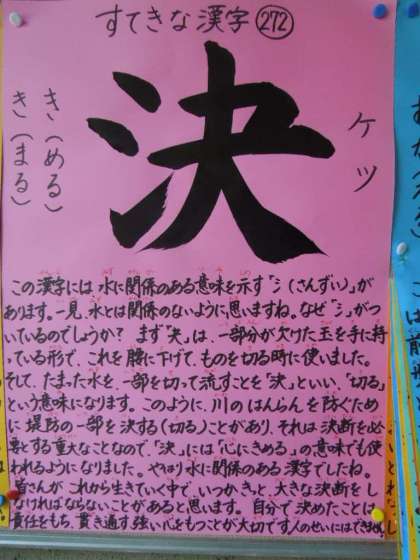 すてきな漢字 272
決
ケツ
き(める)
き(まる)
この漢字には水に関係のある意味を示す「氵(さんずい)」が
あります。一見、水とは関係のないように思いますね。なぜ「氵」がつ
いているのでしょうか? まず「夬」は、一部分が欠けた玉を手に持
っている形で、これを腰に下げて、ものを切る時に使いました。
そして、たまった水を、一部を切って流すことを「決」といい、「切る」
という意味になります。このように、川のはんらんを防ぐため
に堤防の一部を決する(切る)ことがあり、それは決断を必
要とする重大なことなので、「決」には「心にきめる」の意味でも使
われるようになりました。やはり水に関係のある漢字でしたね。
皆さんがこれから生きていく中で、いつかきっと、大きな決断をし
なければならないことがあると思います。自分で決めたことは、
責任をもち、貫き通す強い心をもつことが大切です。人のせいにはできませ